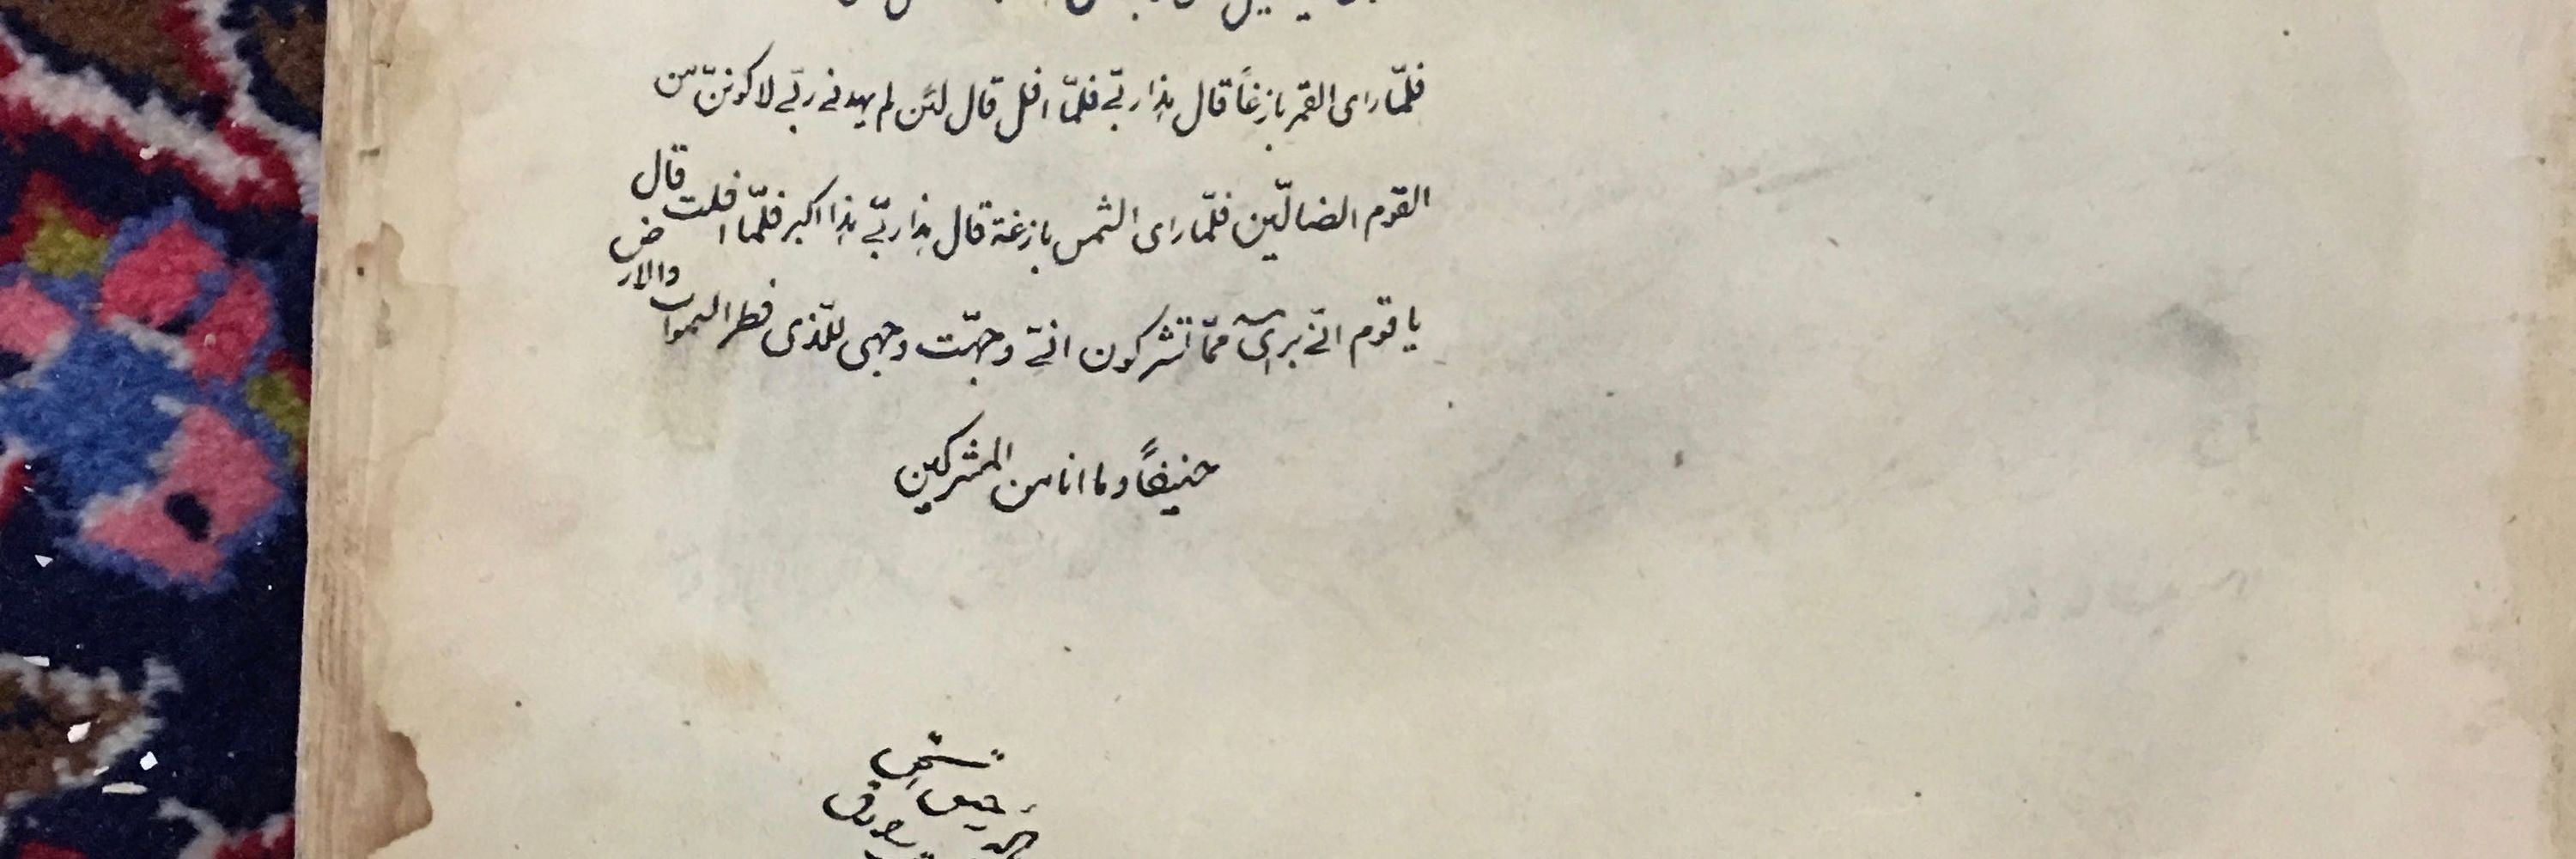 فلمّا رای القمر بازغاً قال هذا ربّی فلمّا افل قال لئن لم یهدنی ربّی لاکوننّ من
القوم الضالّین فلمّا رای الشمس بازغة قال هذا ربّی هذا اکبر فلمّا افلت قال
یا قوم انّی بریٓء ممّا تشرکون انّی وجهّت وجهی للّذی فطر السموات والارض
حنیفاً وما انا من المشرکین